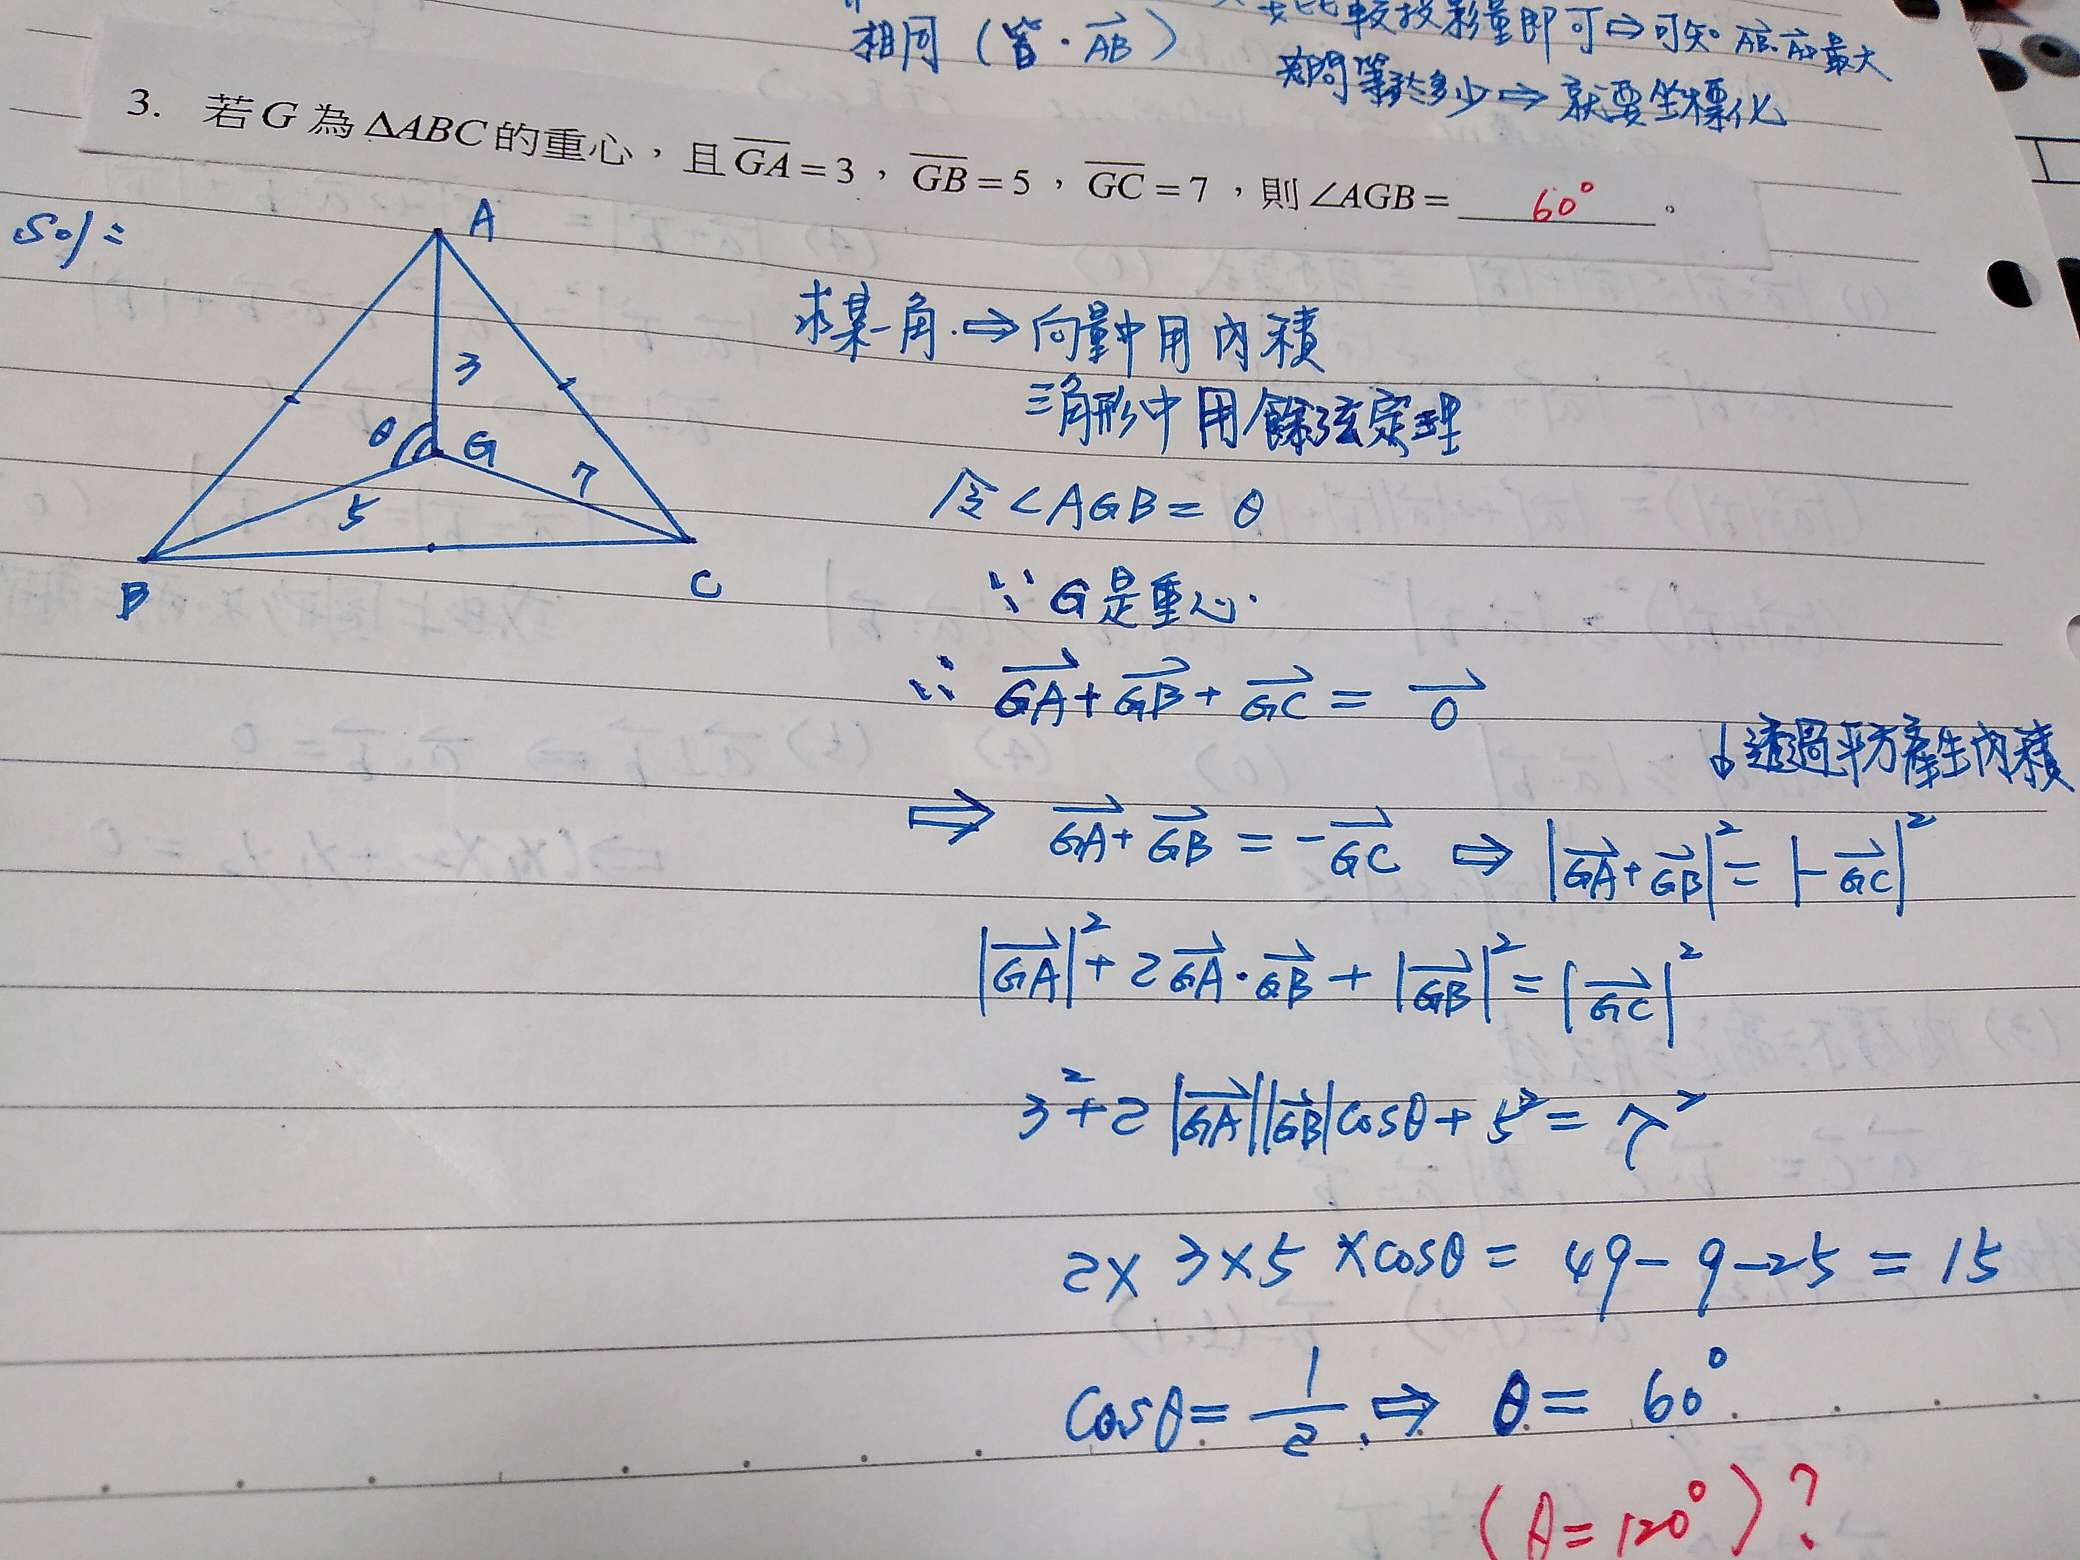 相同（皆·AB）
較投影量即可⇒可知 AB·AD最大
若問等於多少⇒就要坐標化
3. 若G為ΔABC的重心，且GA=3，GB=5，GC=7，則∠AGB= 60° 。
Sol=
A
3
θ G
7
5
B C
求某一角·⇒向量中用內積
三角形中用餘弦定理
令<AGB=θ
∵G是重心·
∴ GA+GB+GC=0
↓透過平方產生內積
⇒ GA+GB=-GC ⇒ |GA+GB|²=|-GC|²
|GA|²+2GA·GB+|GB|²=|GC|²
3²+2|GA||GB|cosθ+5²=7²
2×3×5×cosθ=49-9-25=15
cosθ=1/2 ⇒ θ=60°
(A=120°)?